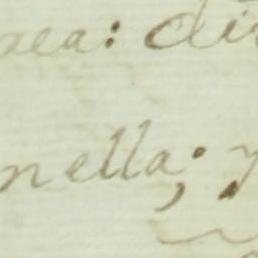 xea: di
nella; y